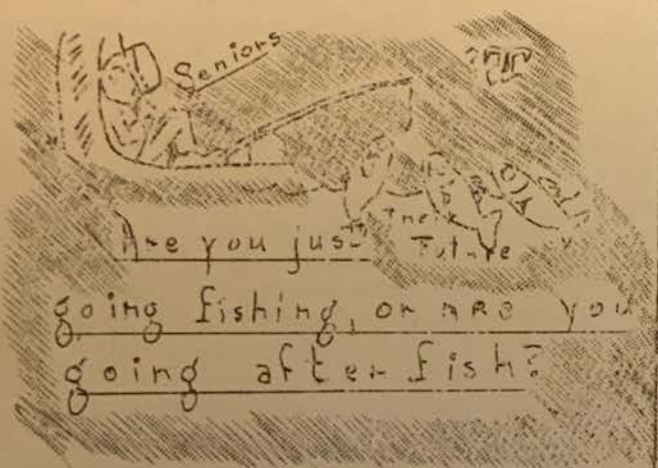 Seniors
Their
Future
Are you just
going fishing, or are you
going after fish?